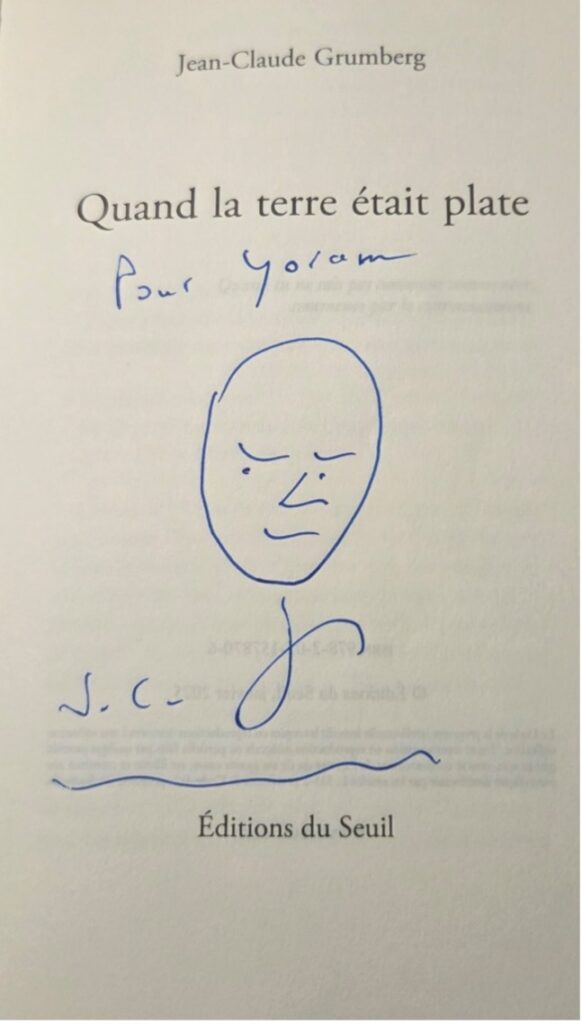 Jean-Claude Grumberg
Quand la terre était plate
Pour Yoram
J. C.
Éditions du Seuil